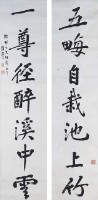 五畮自栽池上竹
一尊徑醉溪中雲